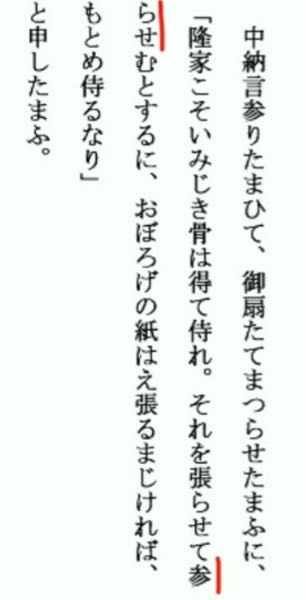 中納言参りたまひて、御扇たてまつらせたまふに、
「隆家こそいみじき骨は得て侍れ。それを張らせて参
らせむとするに、おぼろげの紙はえ張るまじければ、
もとめ侍るなり」
と申したまふ。